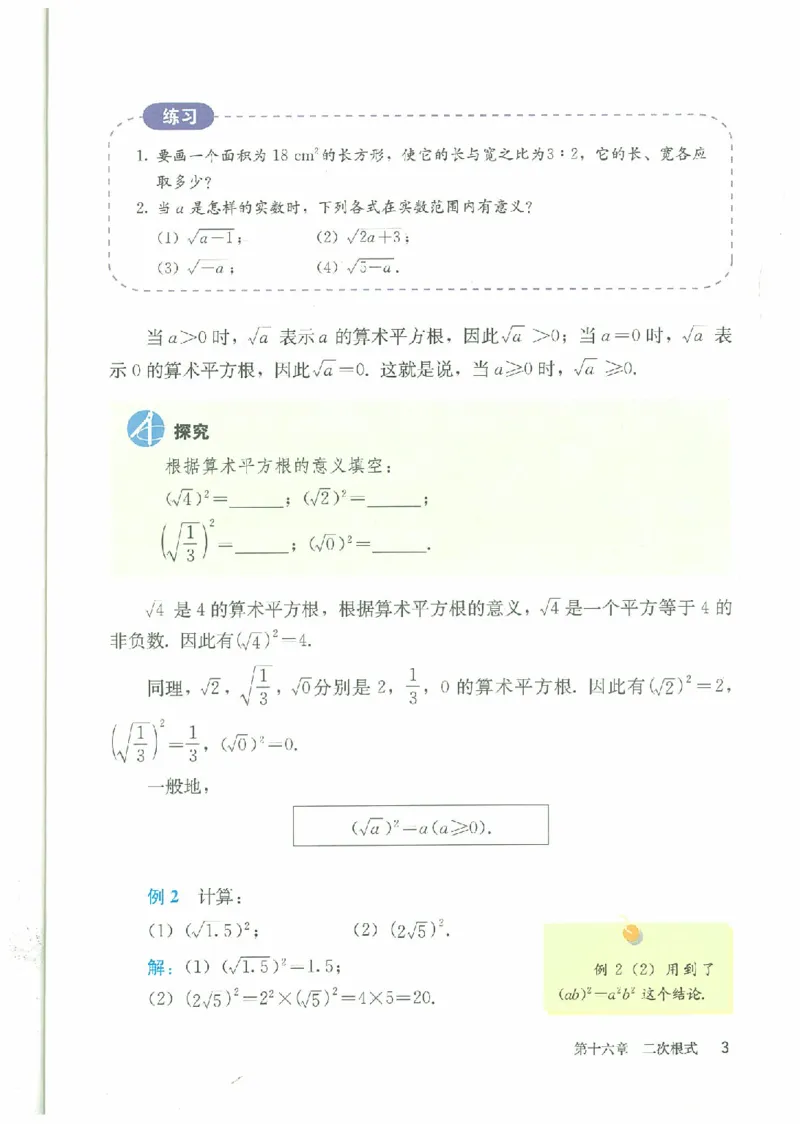 练习
1. 要画一个面积为 18 cm²的长方形，使它的长与宽之比为3∶2，它的长、宽各应
取多少？
2. 当 a 是怎样的实数时，下列各式在实数范围内有意义？
(1) √(a−1)； (2) √(2a+3)；
(3) √(−a)； (4) √(5−a).
当 a>0 时，√a 表示 a 的算术平方根，因此√a >0；当 a=0 时，√a 表
示 0 的算术平方根，因此√a =0. 这就是说，当 a⩾0 时，√a ⩾0.
探究
根据算术平方根的意义填空：
(√4)²=______；(√2)²=______；
(√(1/3))²=______；(√0)²=______.
√4 是 4 的算术平方根，根据算术平方根的意义，√4 是一个平方等于 4 的
非负数. 因此有(√4)²=4.
同理，√2，√(1/3)，√0分别是 2，1/3，0 的算术平方根. 因此有(√2)²=2，
(√(1/3))²=1/3，(√0)²=0.
一般地，
(√a)²=a(a⩾0).
例 2 计算：
(1) (√1.5)²； (2) (2√5)².
解：(1) (√1.5)²=1.5；
(2) (2√5)²=2²×(√5)²=4×5=20.
例 2 (2) 用到了
(ab)²=a²b² 这个结论.
第十六章 二次根式 3